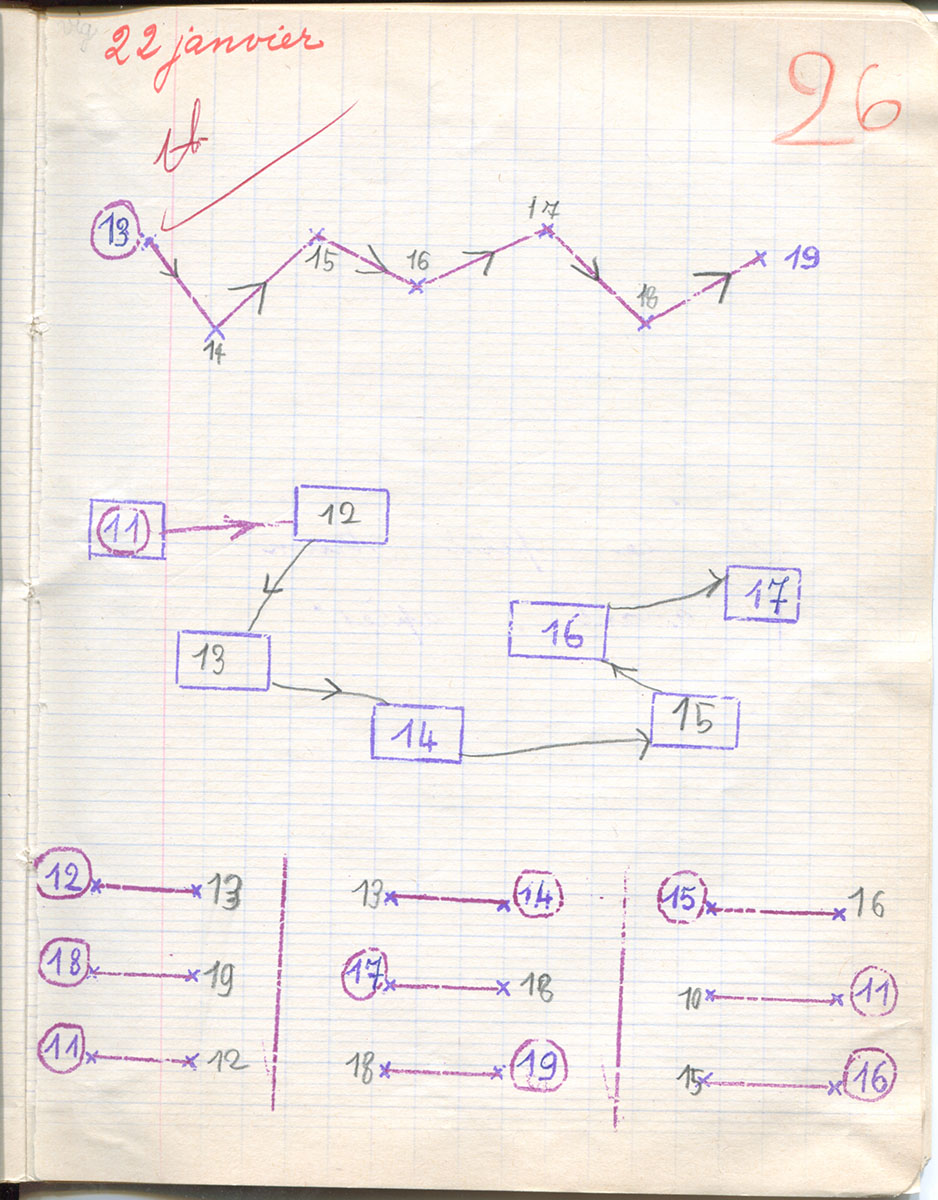 22 janvier
26
tb
13 14 15 16 17 18 19
11 12
13 14 15 16 17
12 13 13 14 15 16
18 19 17 18 10 11
11 12 18 19 15 16